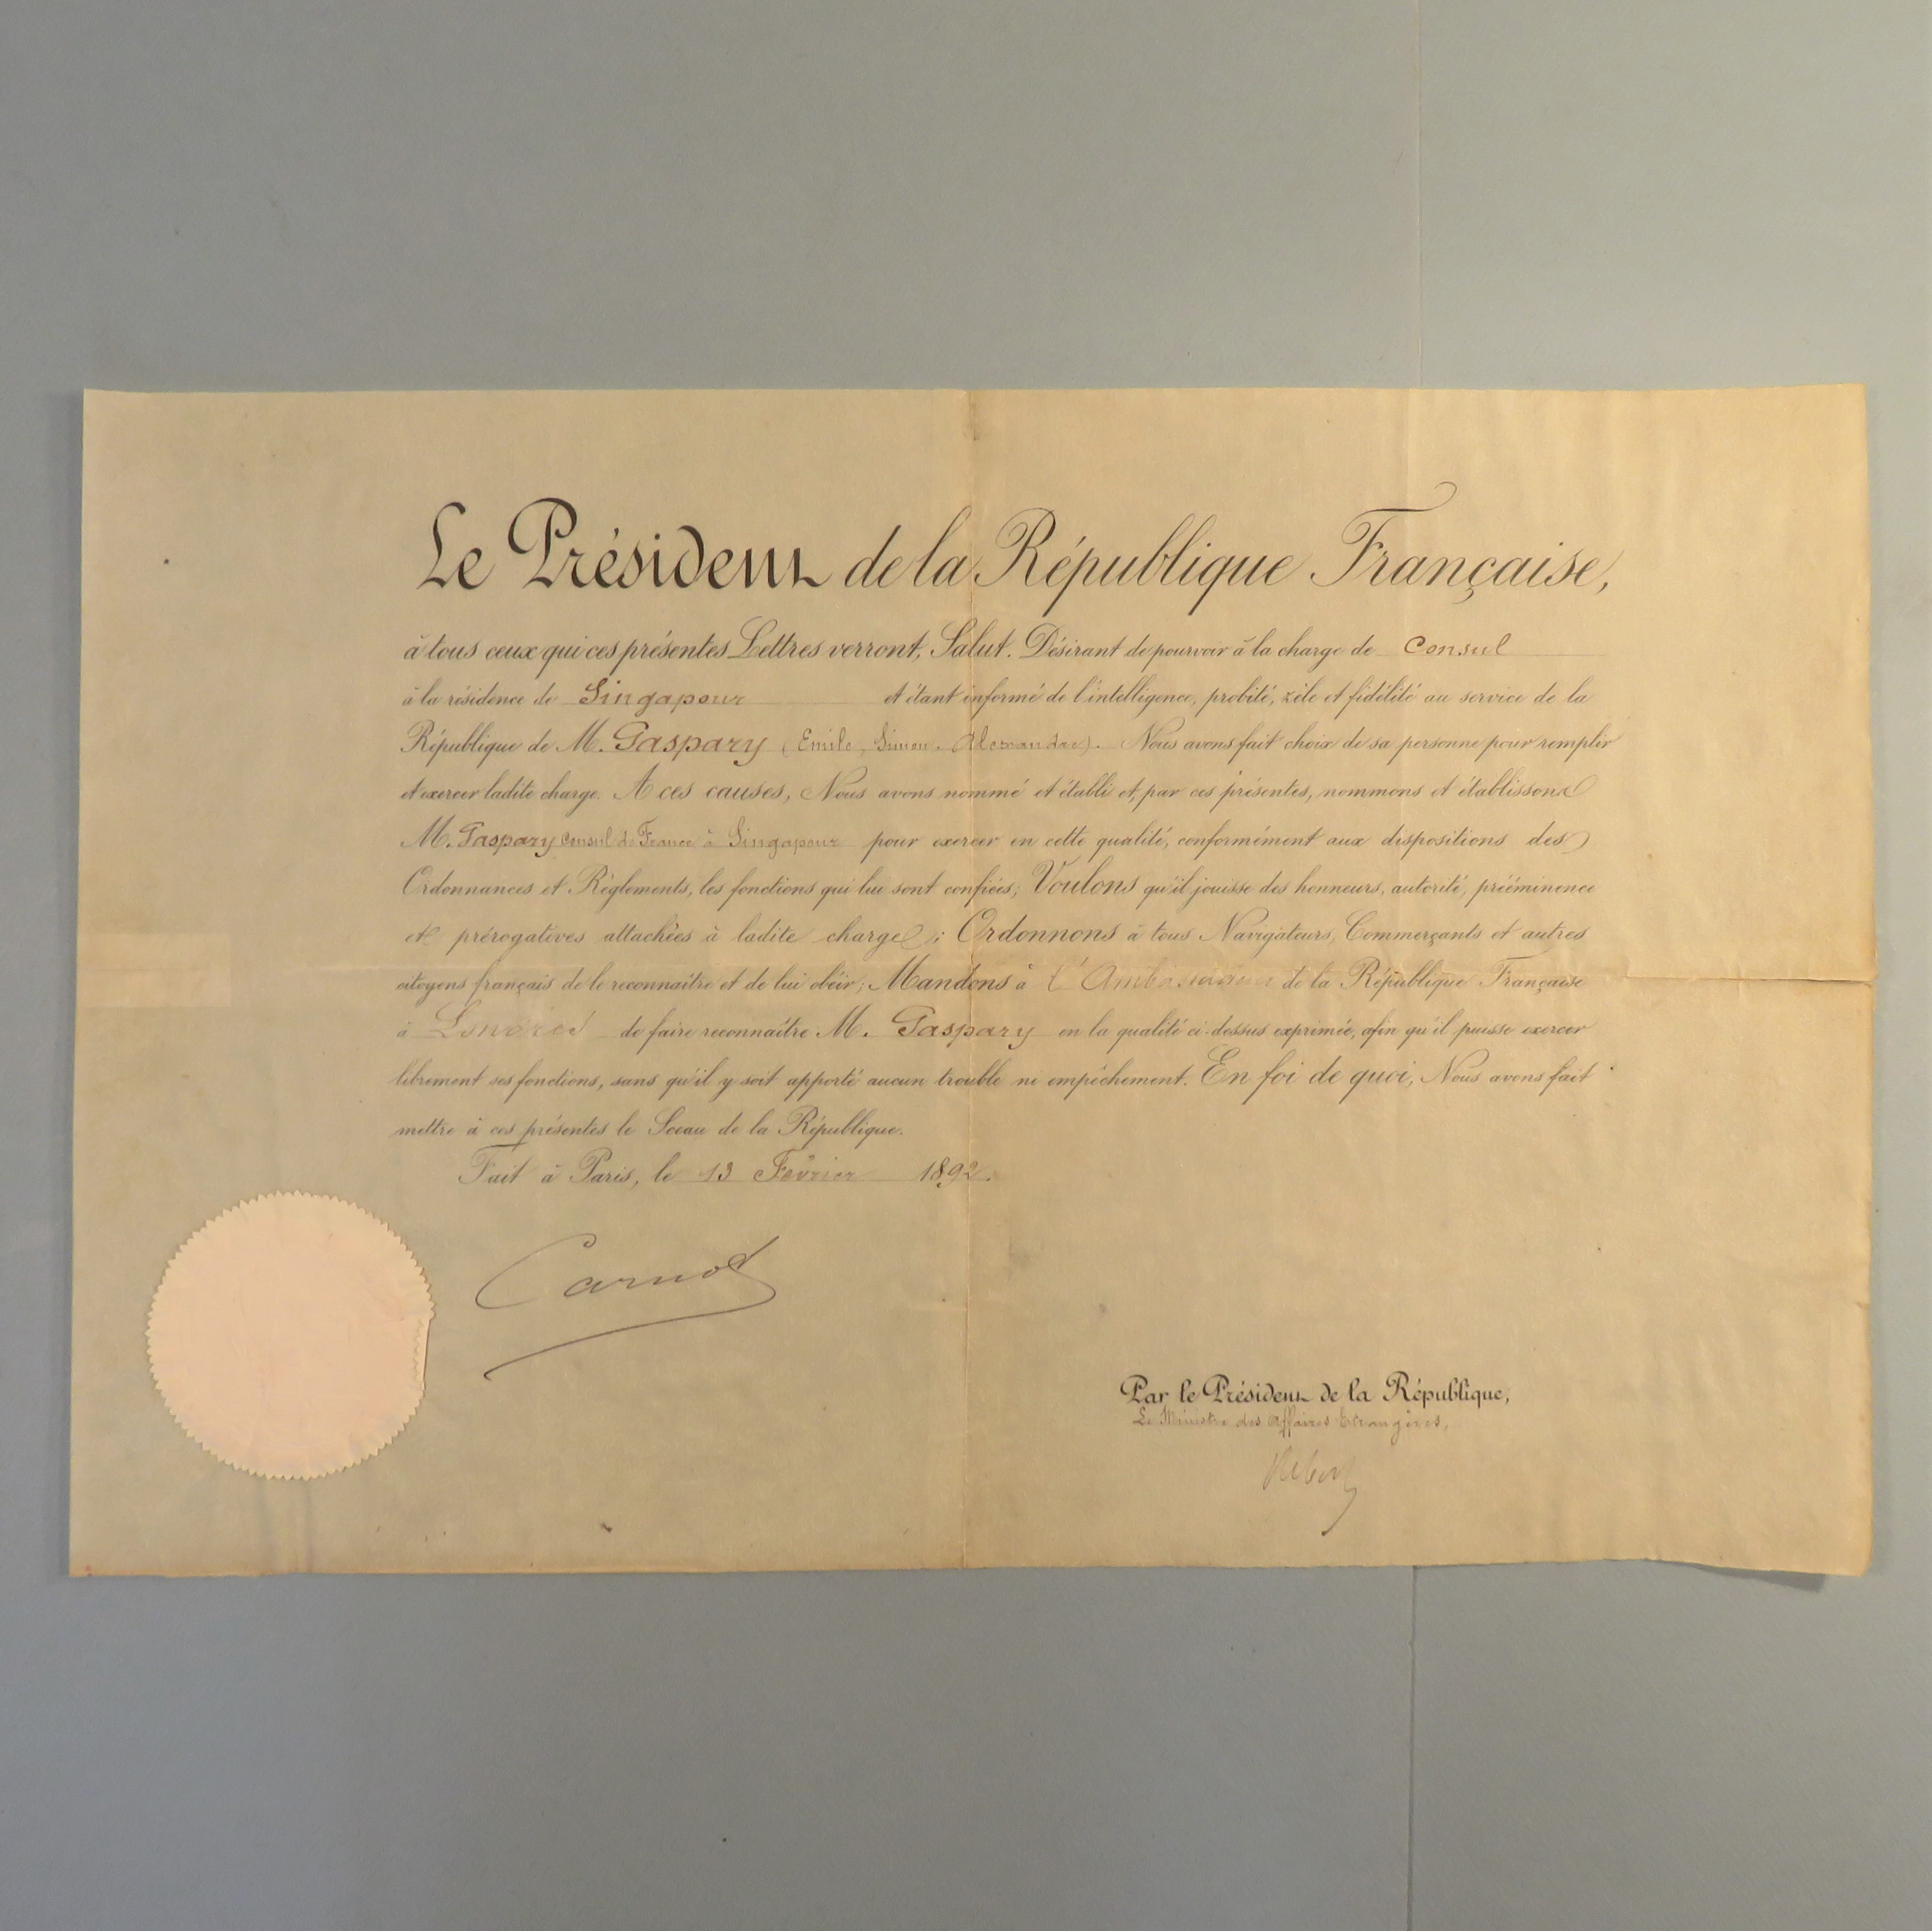 Le Président de la République Française,
à tous ceux qui ces présentes Lettres verront, Salut. Désirant de pourvoir à la charge de Consul
à la résidence de Singapour et étant informé de l'intelligence, probité, zèle et fidélité au service de la
République de M. Gaspary (Emile, Simon, Alexandre). Nous avons fait choix de sa personne pour remplir
et exercer ladite charge. A ces causes, Nous avons nommé et établi et, par ces présentes, nommons et établissons
M. Gaspary Consul de France à Singapour pour exercer en cette qualité, conformément aux dispositions des
Ordonnances et Règlements, les fonctions qui lui sont confiées; Voulons qu'il jouisse des honneurs, autorité, prééminence
et prérogatives attachées à ladite charge; Ordonnons à tous Navigateurs, Commerçants et autres
citoyens français de le reconnaître et de lui obéir; Mandons à l'Ambassadeur de la République Française
à Londres de faire reconnaître M. Gaspary en la qualité ci-dessus exprimée, afin qu'il puisse exercer
librement ses fonctions, sans qu'il y soit apporté aucun trouble ni empêchement. En foi de quoi, Nous avons fait
mettre à ces présentes le Sceau de la République.
Fait à Paris, le 13 Février 1892.
Carnot
Par le Président de la République,
Le Ministre des Affaires Etrangères,
Ribot